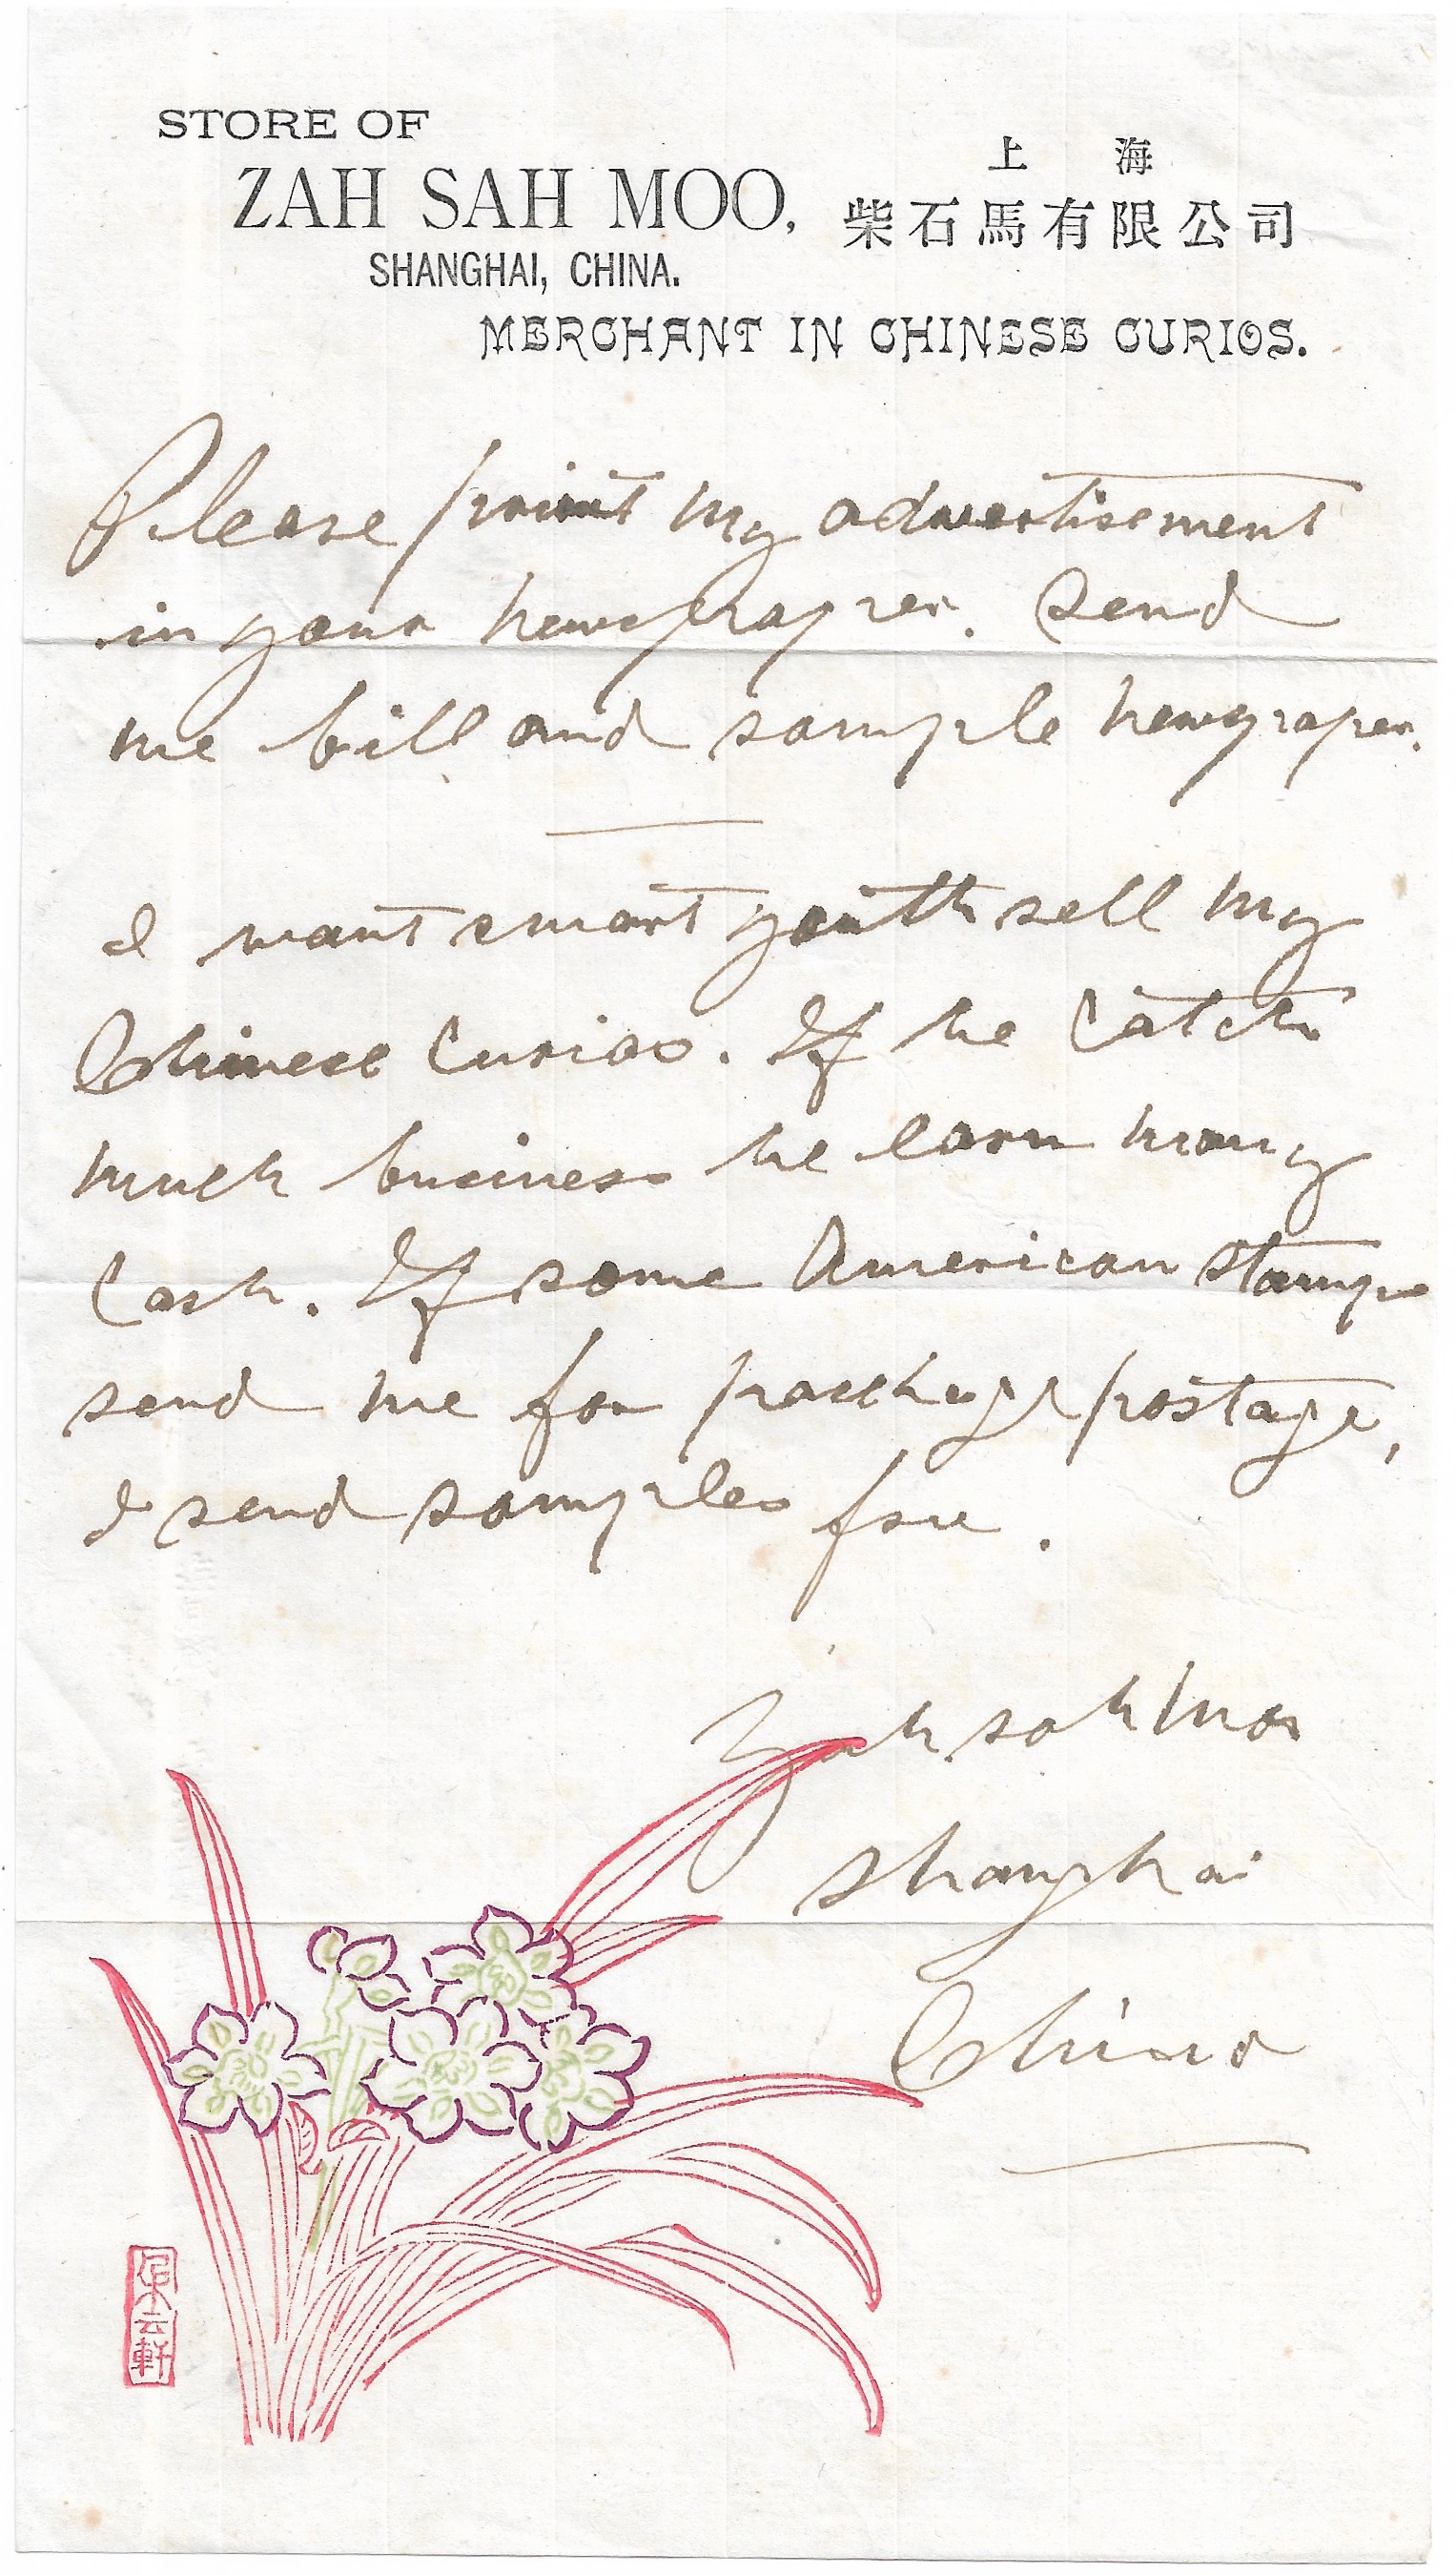 STORE OF
ZAH SAH MOO,
SHANGHAI, CHINA.
上 海
柴石馬有限公司
MERCHANT IN CHINESE CURIOS.
Please print my advertisement
in your newspaper. Send
me bill and sample newspaper.
I want smart youth sell my
Chinese Curios. If he Catch
much business he earn many
Cash. If some American stamps
send me for package postage,
I send samples free.
Zah sah Moo
Shanghai
China
云軒